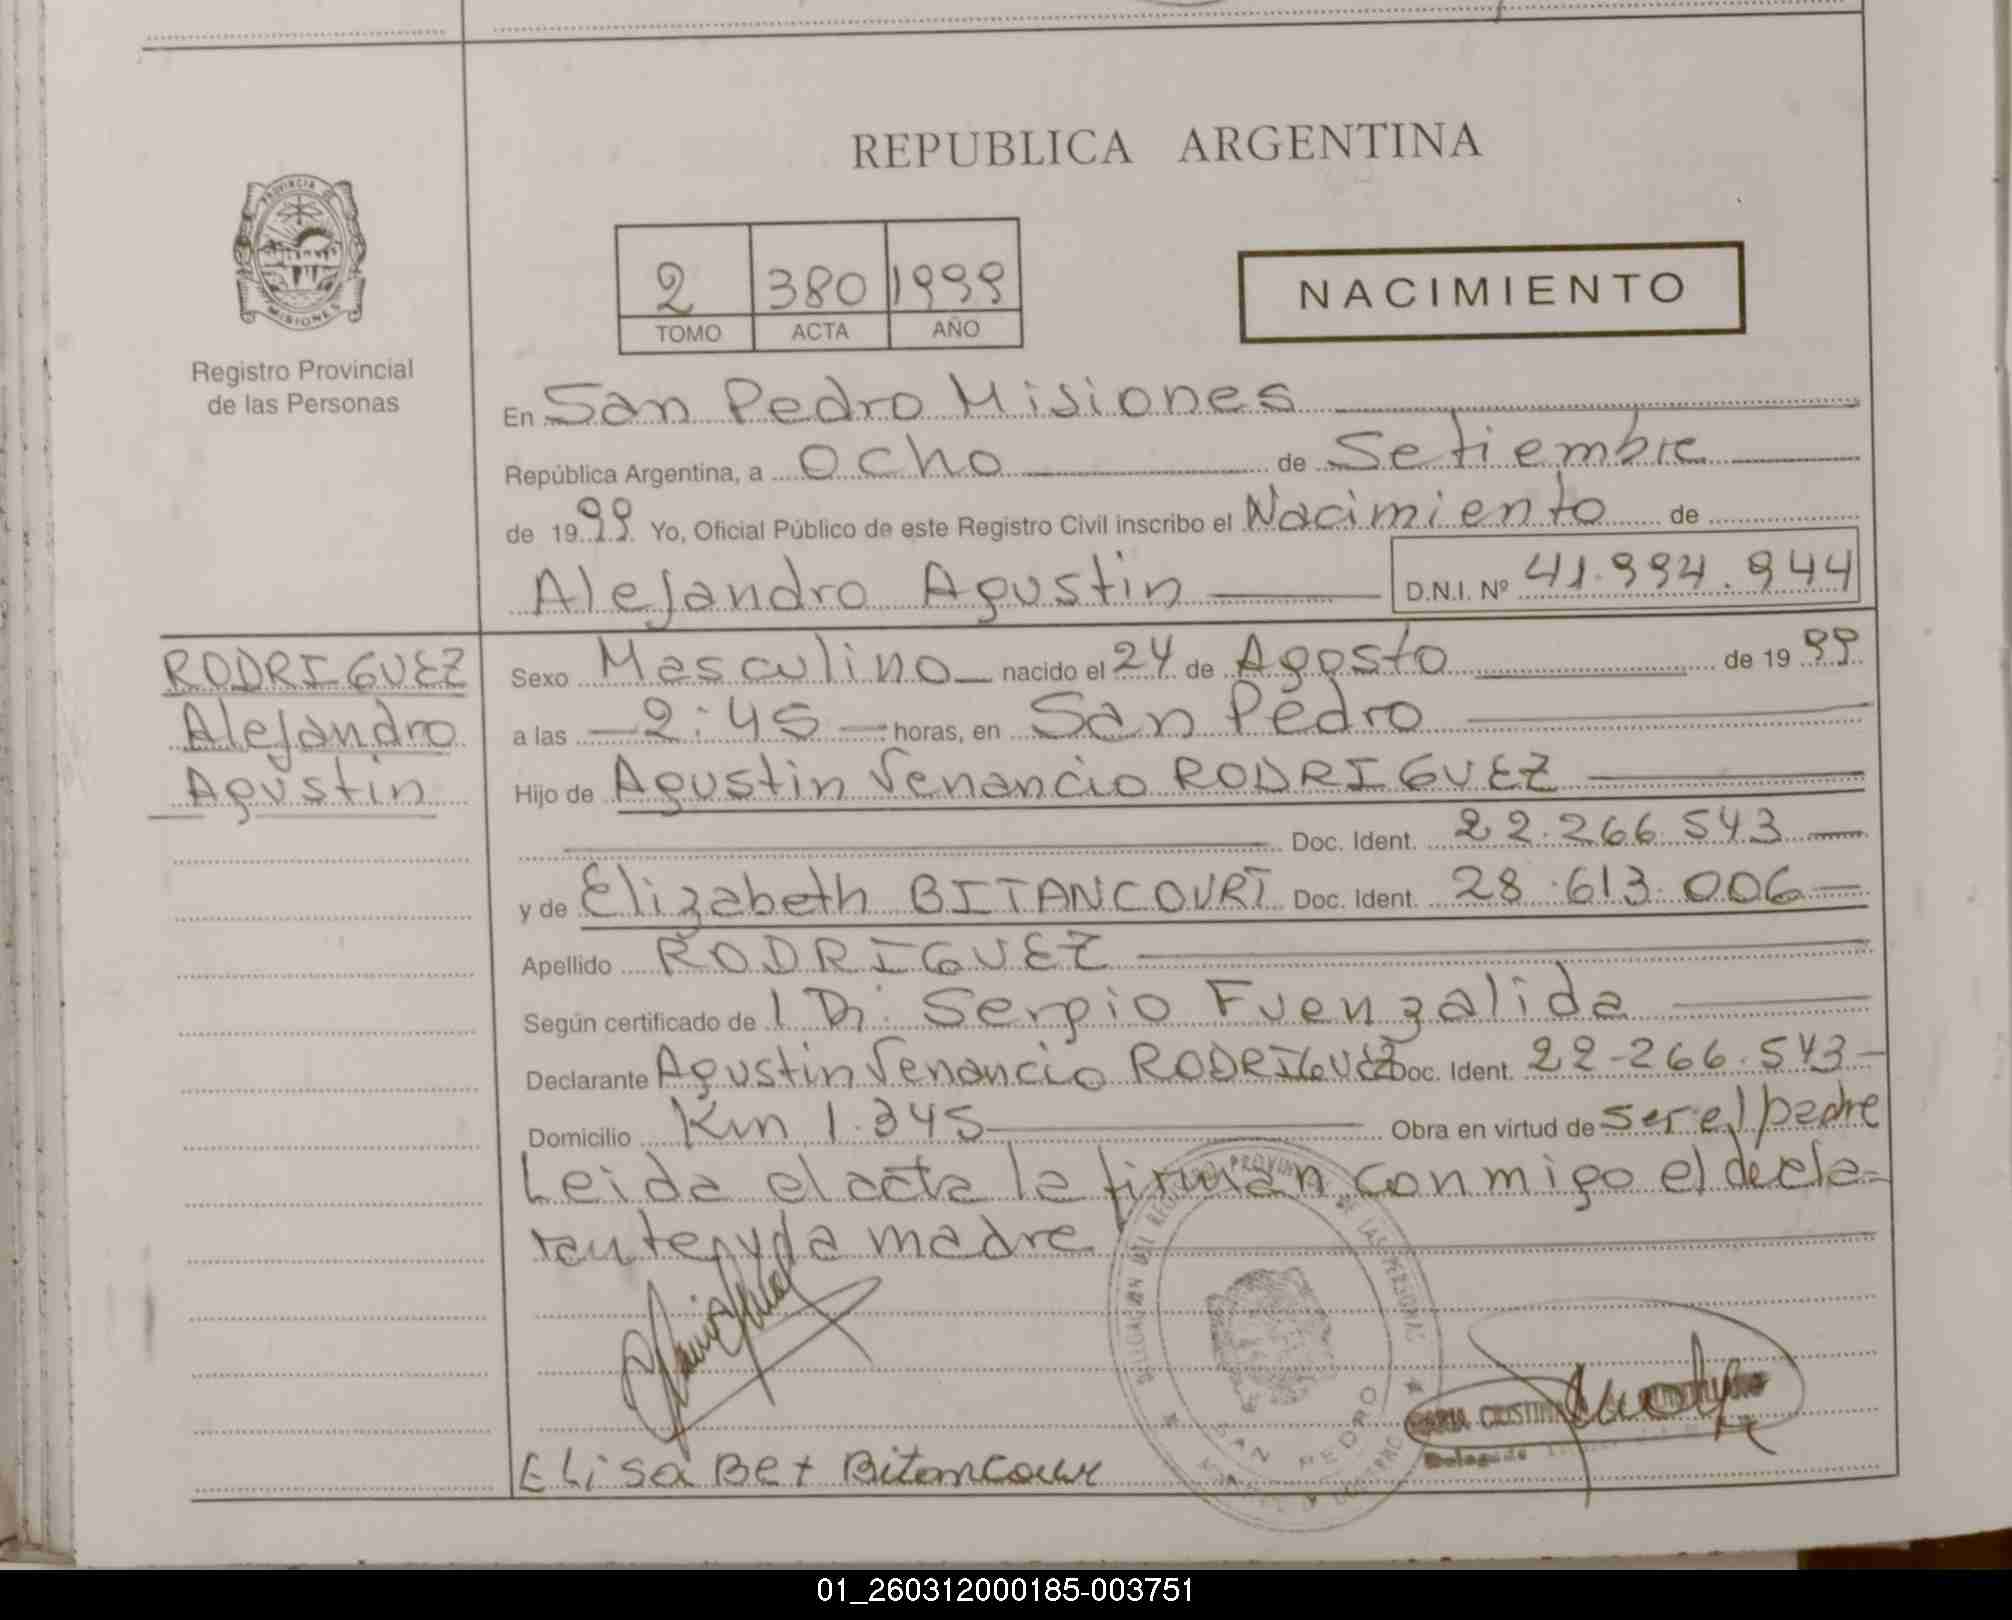 REPUBLICA ARGENTINA
PROVINCIA DE
MISIONES
Registro Provincial
de las Personas
2 380 1999
TOMO ACTA AÑO
NACIMIENTO
En San Pedro Misiones
República Argentina, a Ocho de Setiembre
de 1999 Yo, Oficial Público de este Registro Civil inscribo el Nacimiento de
Alejandro Agustin D.N.I. Nº 41.994.944
RODRIGUEZ
Alejandro
Agustin
Sexo Masculino nacido el 24 de Agosto de 1999
a las 2:45 horas, en San Pedro
Hijo de Agustin Venancio RODRIGUEZ
Doc. Ident. 22.266.543
y de Elizabeth BITANCOURT Doc. Ident. 28.613.006
Apellido RODRIGUEZ
Según certificado de l Dr. Sergio Fuenzalida
Declarante Agustin Venancio RODRIGUEZ Doc. Ident. 22-266.543
Domicilio Km 1.345 Obra en virtud de ser el padre
Leida el acta la firman conmigo el decla-
rante y la madre
DELEGACION DEL REGISTRO PROVINCIAL DE LAS PERSONAS
SAN PEDRO
MARIA CRISTINA
Delegada
ELisa Bet Bitancour
01_260312000185-003751